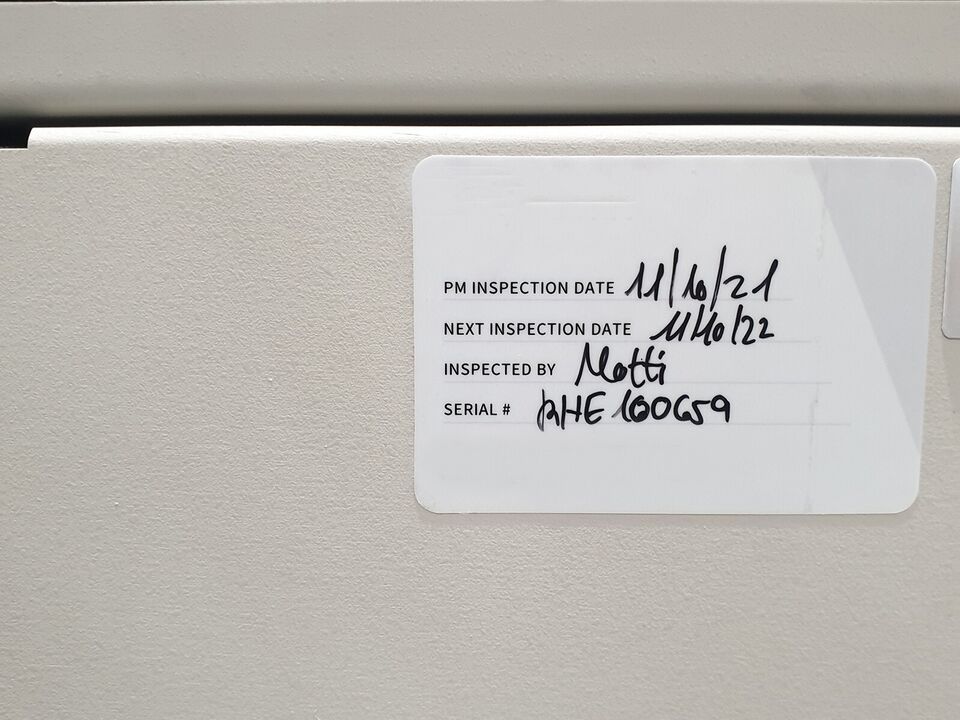 PM INSPECTION DATE 11/10/21
NEXT INSPECTION DATE 11/10/22
INSPECTED BY Motti
SERIAL #